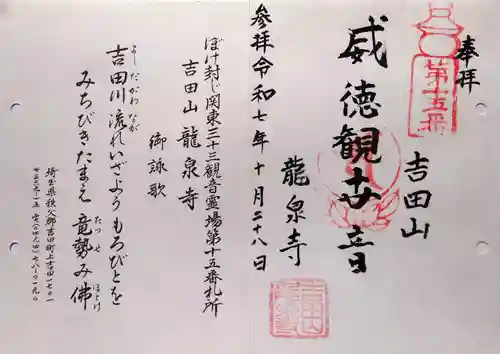 奉拝
第十五番
吉田山
威徳観世音
龍泉寺
参拝令和七年十月二十八日
ぼけ封じ関東三十三観音霊場第十五番札所
吉田山 龍泉寺
御詠歌
吉田川流れいざようもろびとを
よしだがわなが
みちびきたまえ 竜勢み佛
たつせ ほとけ
埼玉県秩父郡吉田町上吉田一七〇一